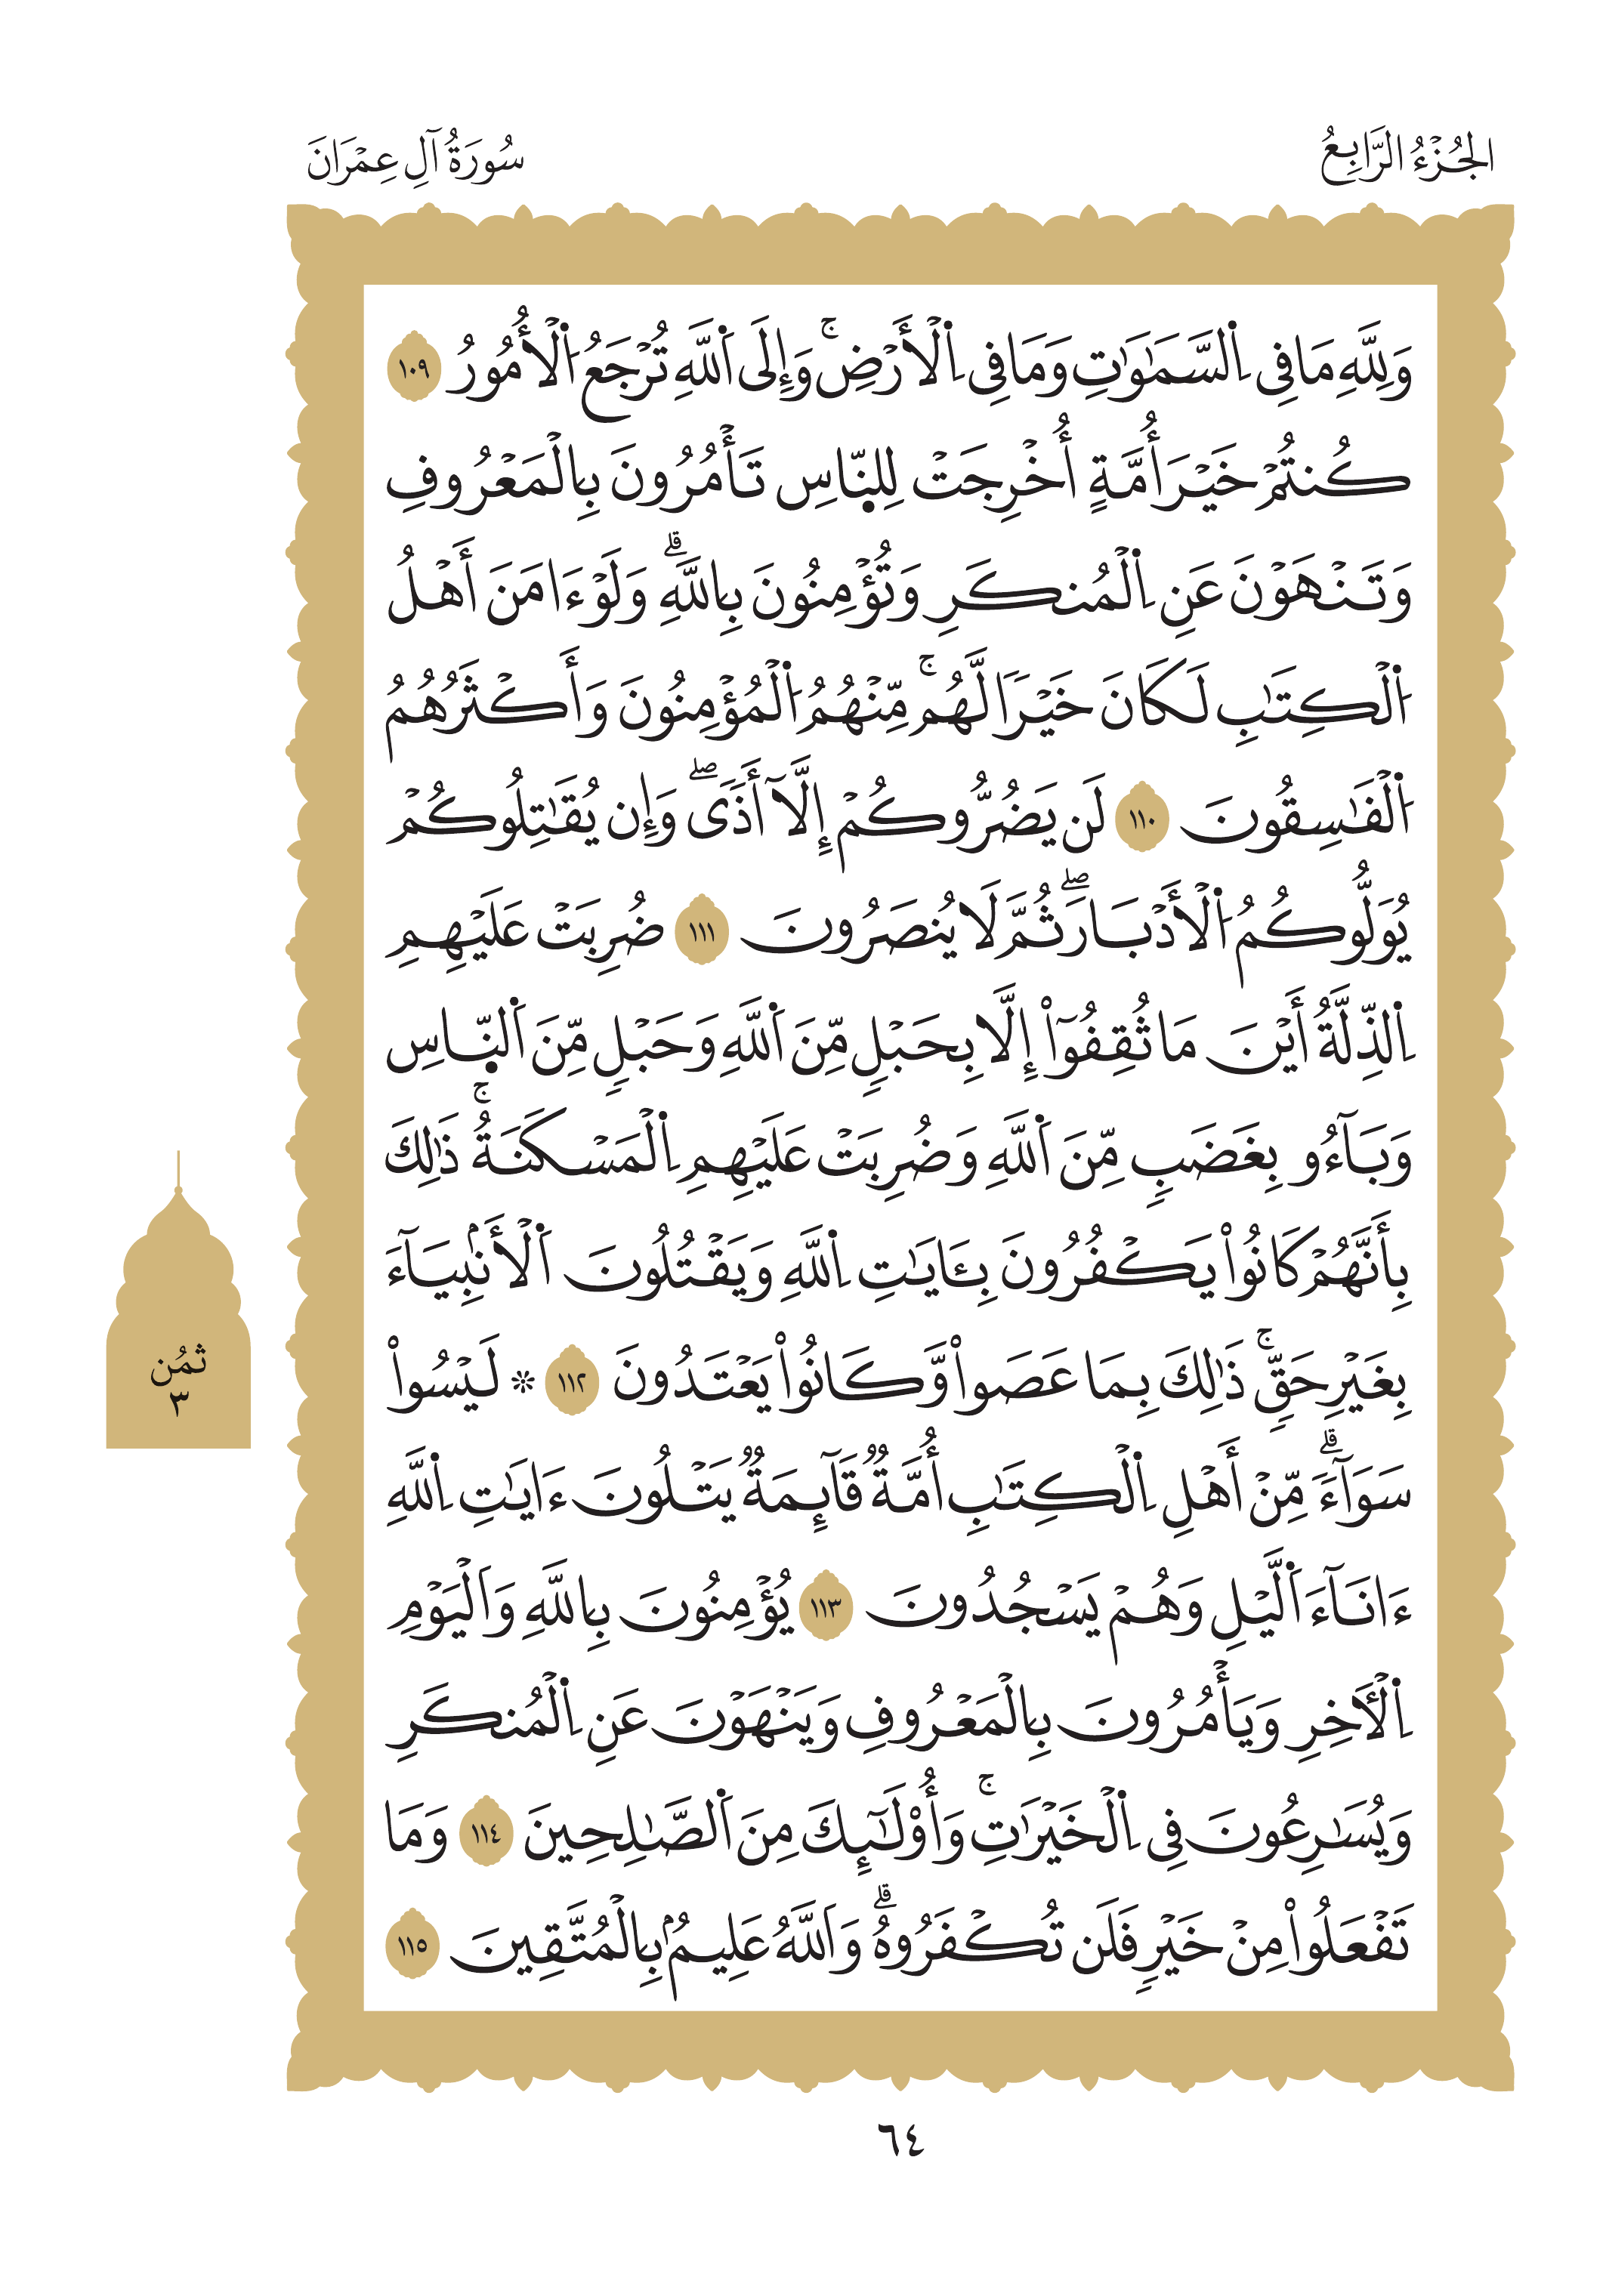 الجُزْءُ الرَّابِعُ
سُورَةُ آلِ عِمْرَانَ
وَلِلَّهِ مَا فِى اِ۬لسَّمَٰوَٰتِ وَمَا فِى اِ۬لْأَرْضِۚ وَإِلَى اَ۬للَّهِ تُرْجَعُ اُ۬لْأُمُورُ ١٠٩
كُنتُمْ خَيْرَ أُمَّةٍ أُخْرِجَتْ لِلنَّاسِ تَأْمُرُونَ بِالْمَعْرُوفِ
وَتَنْهَوْنَ عَنِ اِ۬لْمُنكَرِ وَتُؤْمِنُونَ بِاللَّهِۗ وَلَوْ ءَامَنَ أَهْلُ
اُ۬لْكِتَٰبِ لَكَانَ خَيْرًا لَّهُمۚ مِّنْهُمُ اُ۬لْمُؤْمِنُونَ وَأَكْثَرُهُمُ
اُ۬لْفَٰسِقُونَ ١١٠ لَن يَضُرُّوكُمْ إِلَّآ أَذًىۖ وَإِن يُقَٰتِلُوكُمْ
يُوَلُّوكُمُ اُ۬لْأَدْبَارَۖ ثُمَّ لَا يُنصَرُونَ ١١١ ضُرِبَتْ عَلَيْهِمِ
اِ۬لذِّلَّةُ أَيْنَ مَا ثُقِفُوٓاْ إِلَّا بِحَبْلٍ مِّنَ اَ۬للَّهِ وَحَبْلٍ مِّنَ اَ۬لنَّاسِ
وَبَآءُو بِغَضَبٍ مِّنَ اَ۬للَّهِ وَضُرِبَتْ عَلَيْهِمِ اِ۬لْمَسْكَنَةُۚ ذَٰلِكَ
بِأَنَّهُمْ كَانُواْ يَكْفُرُونَ بِـَٔايَٰتِ اِ۬للَّهِ وَيَقْتُلُونَ اَ۬لْأَنۢبِيَآءَ
بِغَيْرِ حَقٍّۚ ذَٰلِكَ بِمَا عَصَواْ وَّكَانُواْ يَعْتَدُونَ ١١٢ * لَيْسُواْ
سَوَآءًۗ مِّنْ أَهْلِ اِ۬لْكِتَٰبِ أُمَّةٌ قَآئِمَةٌ يَتْلُونَ ءَايَٰتِ اِ۬للَّهِ
ءَانَآءَ اَ۬لَّيْلِ وَهُمْ يَسْجُدُونَ ١١٣ يُؤْمِنُونَ بِاللَّهِ وَاَلْيَوْمِ
اِ۬لْأٓخِرِ وَيَأْمُرُونَ بِالْمَعْرُوفِ وَيَنْهَوْنَ عَنِ اِ۬لْمُنكَرِ
وَيُسَٰرِعُونَ فِى اِ۬لْخَيْرَٰتِۚ وَأُوْلَٰٓئِكَ مِنَ اَ۬لصَّٰلِحِينَ ١١٤ وَمَا
تَفْعَلُواْ مِنْ خَيْرٍ فَلَن تُكْفَرُوهُۗ وَاَللَّهُ عَلِيمٌۢ بِالْمُتَّقِينَ ١١٥
ثُمُن
٣
٦٤